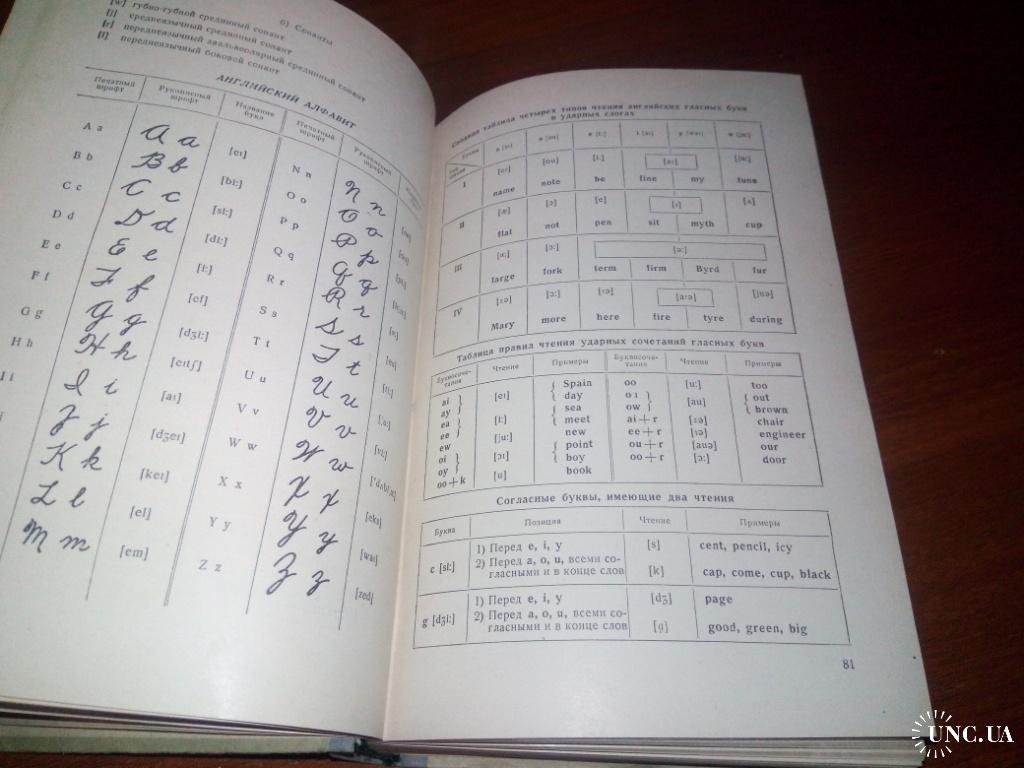 б) Сонанты
[w] губно-губной срединный сонант
[j] среднеязычный срединный сонант
[r] переднеязычный заальвеолярный срединный сонант
[l] переднеязычный боковой сонант
АНГЛИЙСКИЙ АЛФАВИТ
Печатный шрифт Рукописный шрифт Название букв Печатный шрифт Рукописный шрифт
A a A a [eɪ] N n N n
B b B b [bi:] O o O o
C c C c [si:] P p P p
D d D d [di:] Q q Q q
E e E e [i:] R r R r
F f F f [ef] S s S s
G g G g [dʒi:] T t T t [ti:]
H h H h [eɪtʃ] U u U u
I i I i [aɪ] V v V v [vi:]
J j [dʒeɪ] W w W w
K k [keɪ] X x X x [eks]
L l [el] Y y Y y [waɪ]
M m [em] Z z Z z [zed]
Сводная таблица четырех типов чтения английских гласных букв
в ударных слогах
Буквы a [eɪ] o [ou] e [i:] i [aɪ] y [waɪ] u [ju:]
I [eɪ] [ou] [i:] [aɪ] [ju:]
name note be fine my tune
II [æ] [ɔ] [e] [ɪ] [ʌ]
flat not pen sit myth cup
III [ɑ:] [ɔ:] [ə:]
large fork term firm Byrd fur
IV [ɛə] [ɔ:] [ɪə] [aɪə] [juə]
Mary more here fire tyre during
Таблица правил чтения ударных сочетаний гласных букв
Буквосоче-тания Чтение Примеры Буквосоче-тания Чтение Примеры
ai } [eɪ] { Spain oo [u:] too
ay } { day ou } [au] { out
ea } [i:] { sea ow } { brown
ee } { meet ai+r [ɛə] chair
ew [ju:] new ee+r [ɪə] engineer
oi } [ɔɪ] { point ou+r [auə] our
oy } { boy oo+r [ɔ:] door
oo+k [u] book
Согласные буквы, имеющие два чтения
Буква Позиция Чтение Примеры
c [si:] 1) Перед e, i, y [s] cent, pencil, icy
2) Перед a, o, u, всеми со-
гласными и в конце слов [k] cap, come, cup, black
g [dʒi:] 1) Перед e, i, y [dʒ] page
2) Перед a, o, u, всеми со-
гласными и в конце слов [g] good, green, big
81
UNC.UA